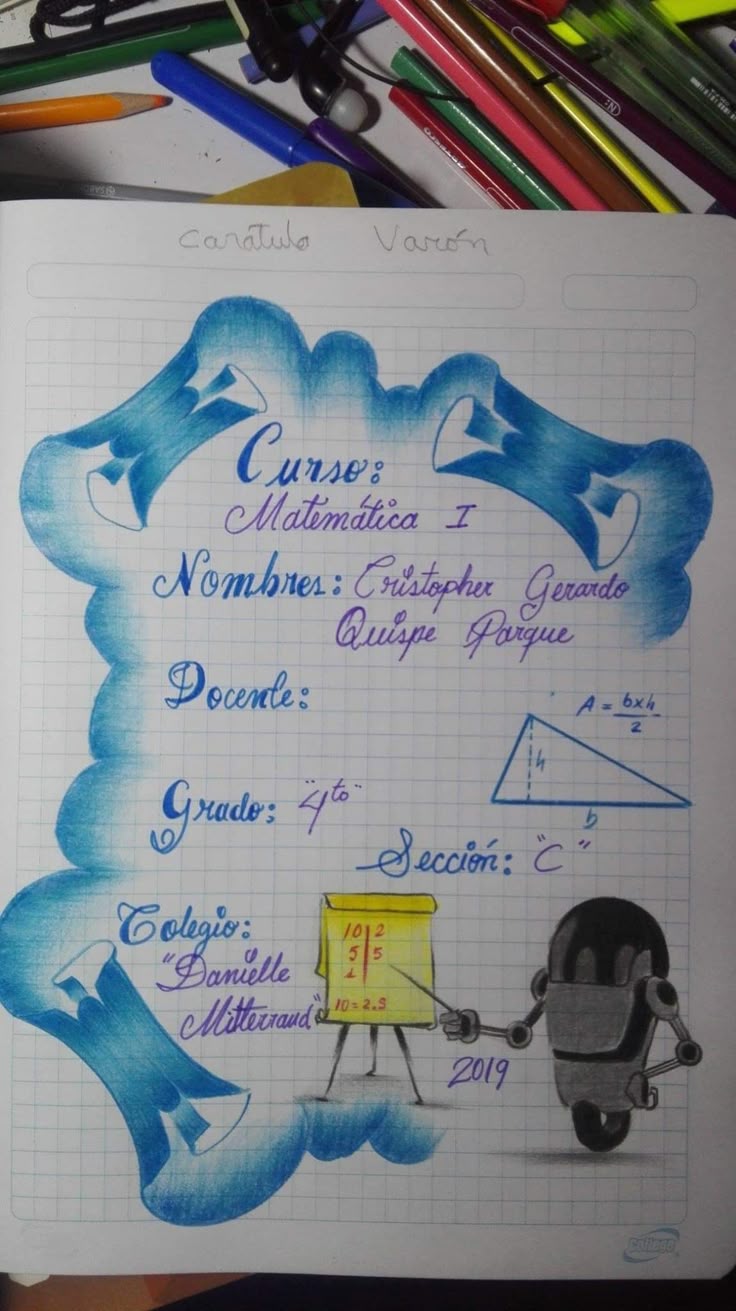 Carátula Varón
Curso:
Matemática I
Nombres: Cristopher Gerardo
Quispe Parque
Docente:
A = bxh
2
h
b
Grado: "4to"
Sección: "C"
Colegio:
"Danielle
Mitterrand"
10 | 2
5 | 5
1
10 = 2.5
2019
college